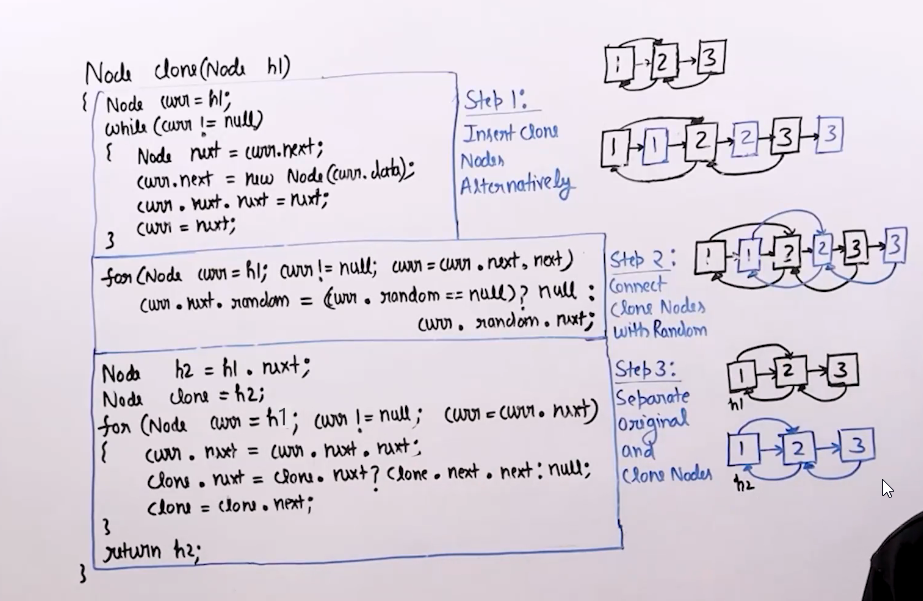 Node clone(Node h1)
{ Node curr = h1;
while (curr != null)
{ Node next = curr.next;
curr.next = new Node(curr.data);
curr.next.next = next;
curr = next;
}
for(Node curr=h1; curr != null; curr=curr.next.next)
curr.next.random = (curr.random == null)? null :
curr.random.next;
Node h2 = h1.next;
Node clone = h2;
for (Node curr = h1; curr != null; curr=curr.next)
{ curr.next = curr.next.next;
clone.next = clone.next? clone.next.next: null;
clone = clone.next;
}
return h2;
}
Step 1:
Insert Clone
Nodes
Alternatively
Step 2:
Connect
Clone Nodes
with Random
Step 3:
Separate
original
and
Clone Nodes
1 2 3
1 1 2 2 3 3
1 1 2 2 3 3
1 2 3
h1
1 2 3
h2